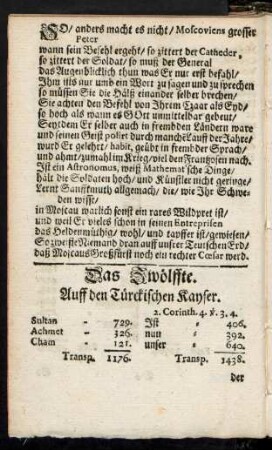 SO/ anders macht es nicht/ Moscoviens grosser
Peter
wann sein Befehl ergeht/ so zittert der Catheder,
so zittert der Soldat/ so muß der General
das Augenblicklich thun was Er nur erst befahl/
Ihm ists nur umb ein Wort zu sagen und zu sprechen
so müssen Sie die Hälß einander selber brechen/
Sie achten den Befehl von Ihrem Czaar als Eyd/
so hoch als wann es GOtt unmittelbar gebeut/
Seytdem Er selber auch in frembden Ländern ware
und seinen Geist poliert durch manch Lauff der Jahre/
wurd Er gelehrt/ habit, geübt in frembder Sprach/
und ahmt/ zumahl im Krieg/ viel den Frantzosen nach.
Ist ein Astronomus, weiß Mathematische Dinge/
hält die Soldaten hoch/ und Künstler nicht geringe/
Lernt Sanfftmuth allgemach/ die/ wie Ihr Schweden
wißt/
in Moscau warlich sonst ein rares Wildpret ist/
und weil Er vieles schon in seinen Entreprisen
das Heldenmüthig/ wohl/ und tapffer ist/ gewiesen/
So zweifle Niemand dran auff unsrer Teutschen Erd/
daß Moscaus Großfürst noch ein rechter Cæsar werd.
Das Zwölffte.
Auff den Türckischen Kayser.
2. Corinth. 4. v. 3. 4.
Sultan - 729. Ist - 406.
Achmet - 326. nun - 392.
Cham - 121. unser - 640.
Transp. 1176. Transp. 1438.
der